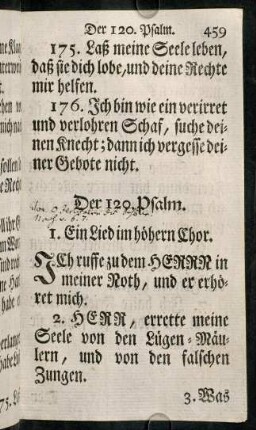 Der 120. Psalm. 459
175. Laß meine Seele leben,
daß sie dich lobe, und deine Rechte
mir helfen.
176. Ich bin wie ein verirret
und verlohren Schaf, suche dei-
nen Knecht; dann ich vergesse dei-
ner Gebote nicht.
Der 120. Psalm.
1. Ein Lied im höhern Chor.
ICh ruffe zu dem HERRN in
meiner Noth, und er erhö-
ret mich.
2. HERR, errette meine
Seele von den Lügen-Mäu-
lern, und von den falschen
Zungen.
3. Was